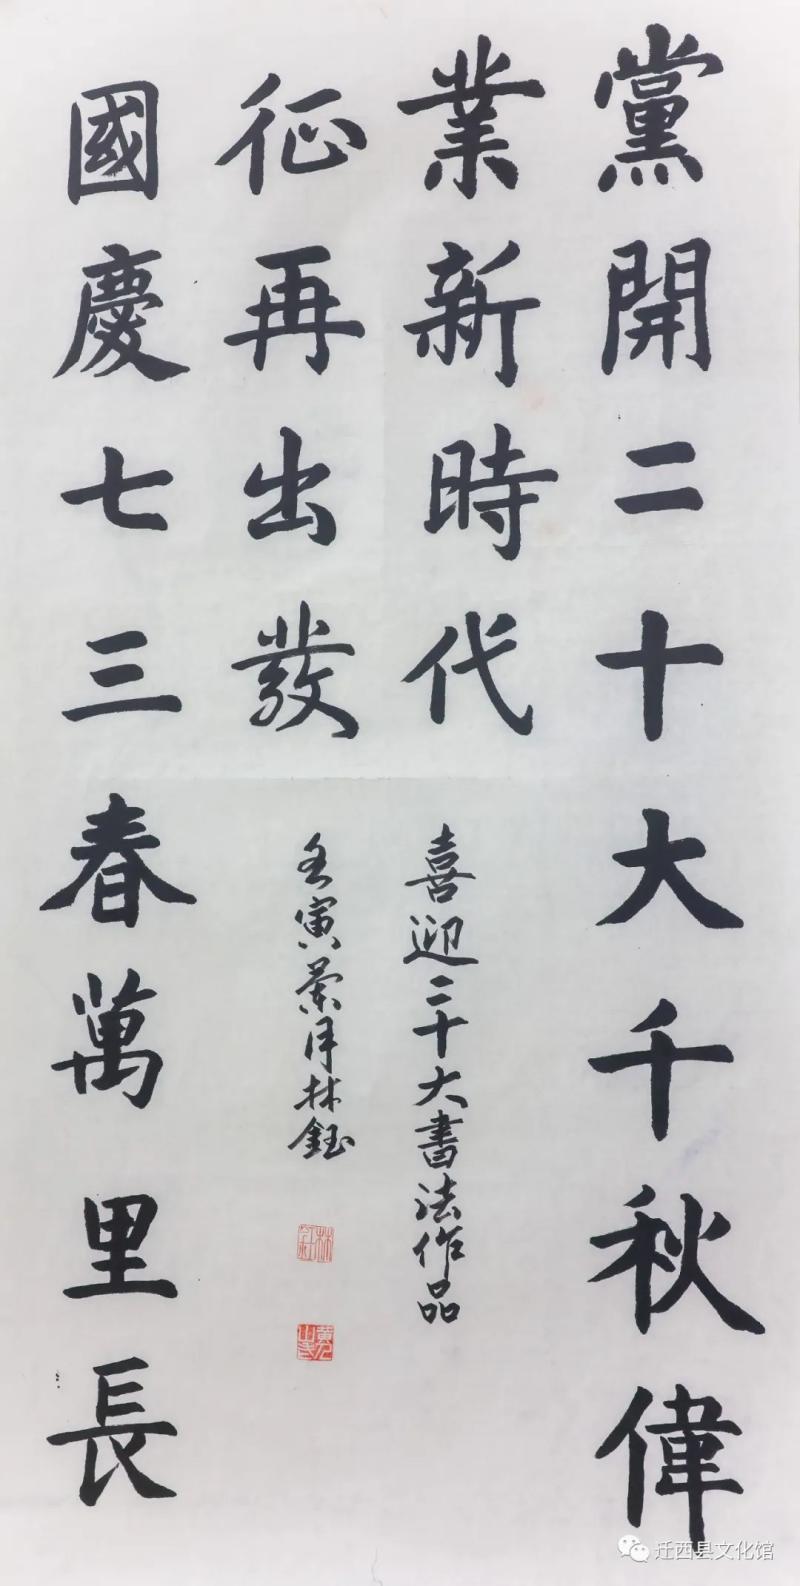 黨開二十大千秋偉
業新時代
喜迎二十大書法作品
國慶七三春萬里長
征再出發
壬寅月林鈺
林鈺
迁西县文化馆